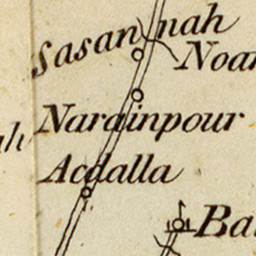 Sasannah
Noar
Narainpour
Acdalla
Ba